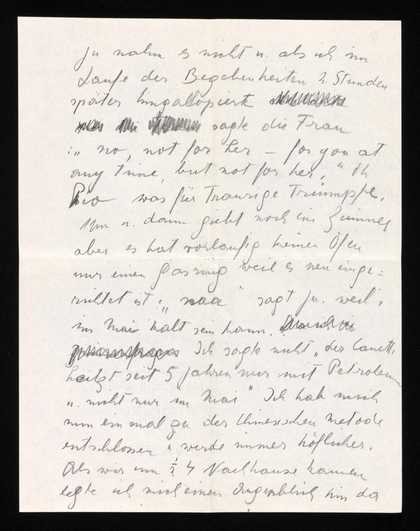 ja nahm es nicht u. als ich im
Laufe der Begebenheiten 2 Stunden
später hingaloppierte
sagte die Frau
: „ no, not for her – for you at
any time, but not for her," Oh
was für traurige Triumpfe,
Nun u. dann giebt noch ein Zimmer
aber es hat vorläufig keinen Ofen
nur einen Gasring weil es neu inge=
ist „ naa " sagt ja. weil's
im Mai kalt sein kann.
Ich sagte nicht „ der Canetti
heitzt seit 5 Jahren nur mit Petroleum
u. nicht nur im Mai" Ich hab mich
nun einmal zu der chinesischen metode
entschlossen u werde immer höflicher.
Als wir um ½ 4 Nachhause kamen
legte ich mich einen Augenblick hin da